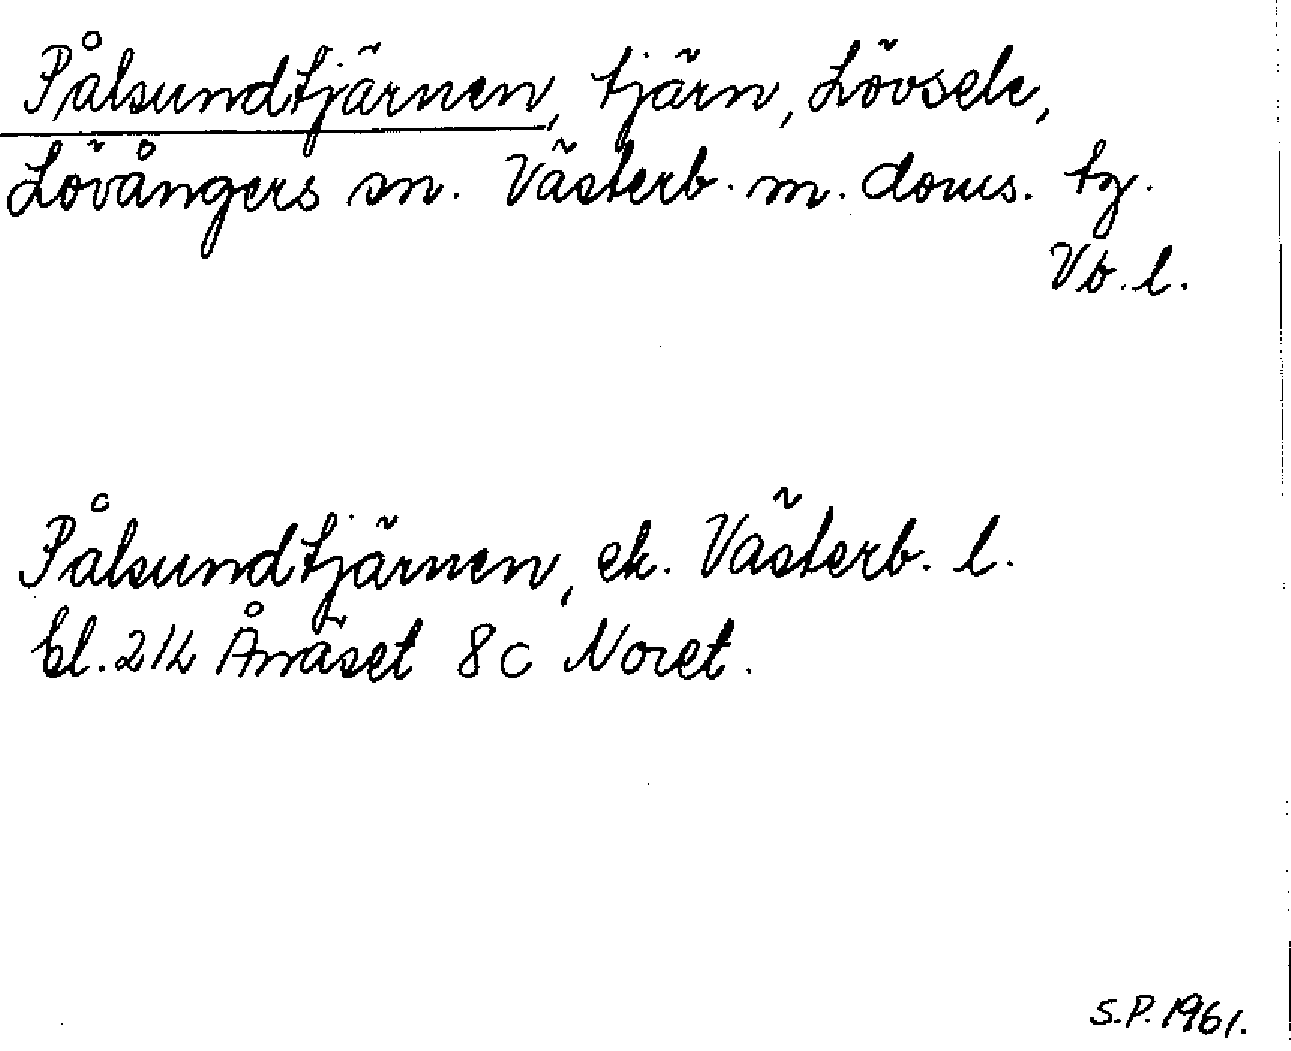 Pålsundtjärnen, tjärn, Lövsele,
Lövångers sn. Västerb. m. doms. tg.
Vb. l.
Pålsundtjärnen, ek. Västerb. l.
bl. 212 Ånäset 8c Noret.
S.P. 1961.